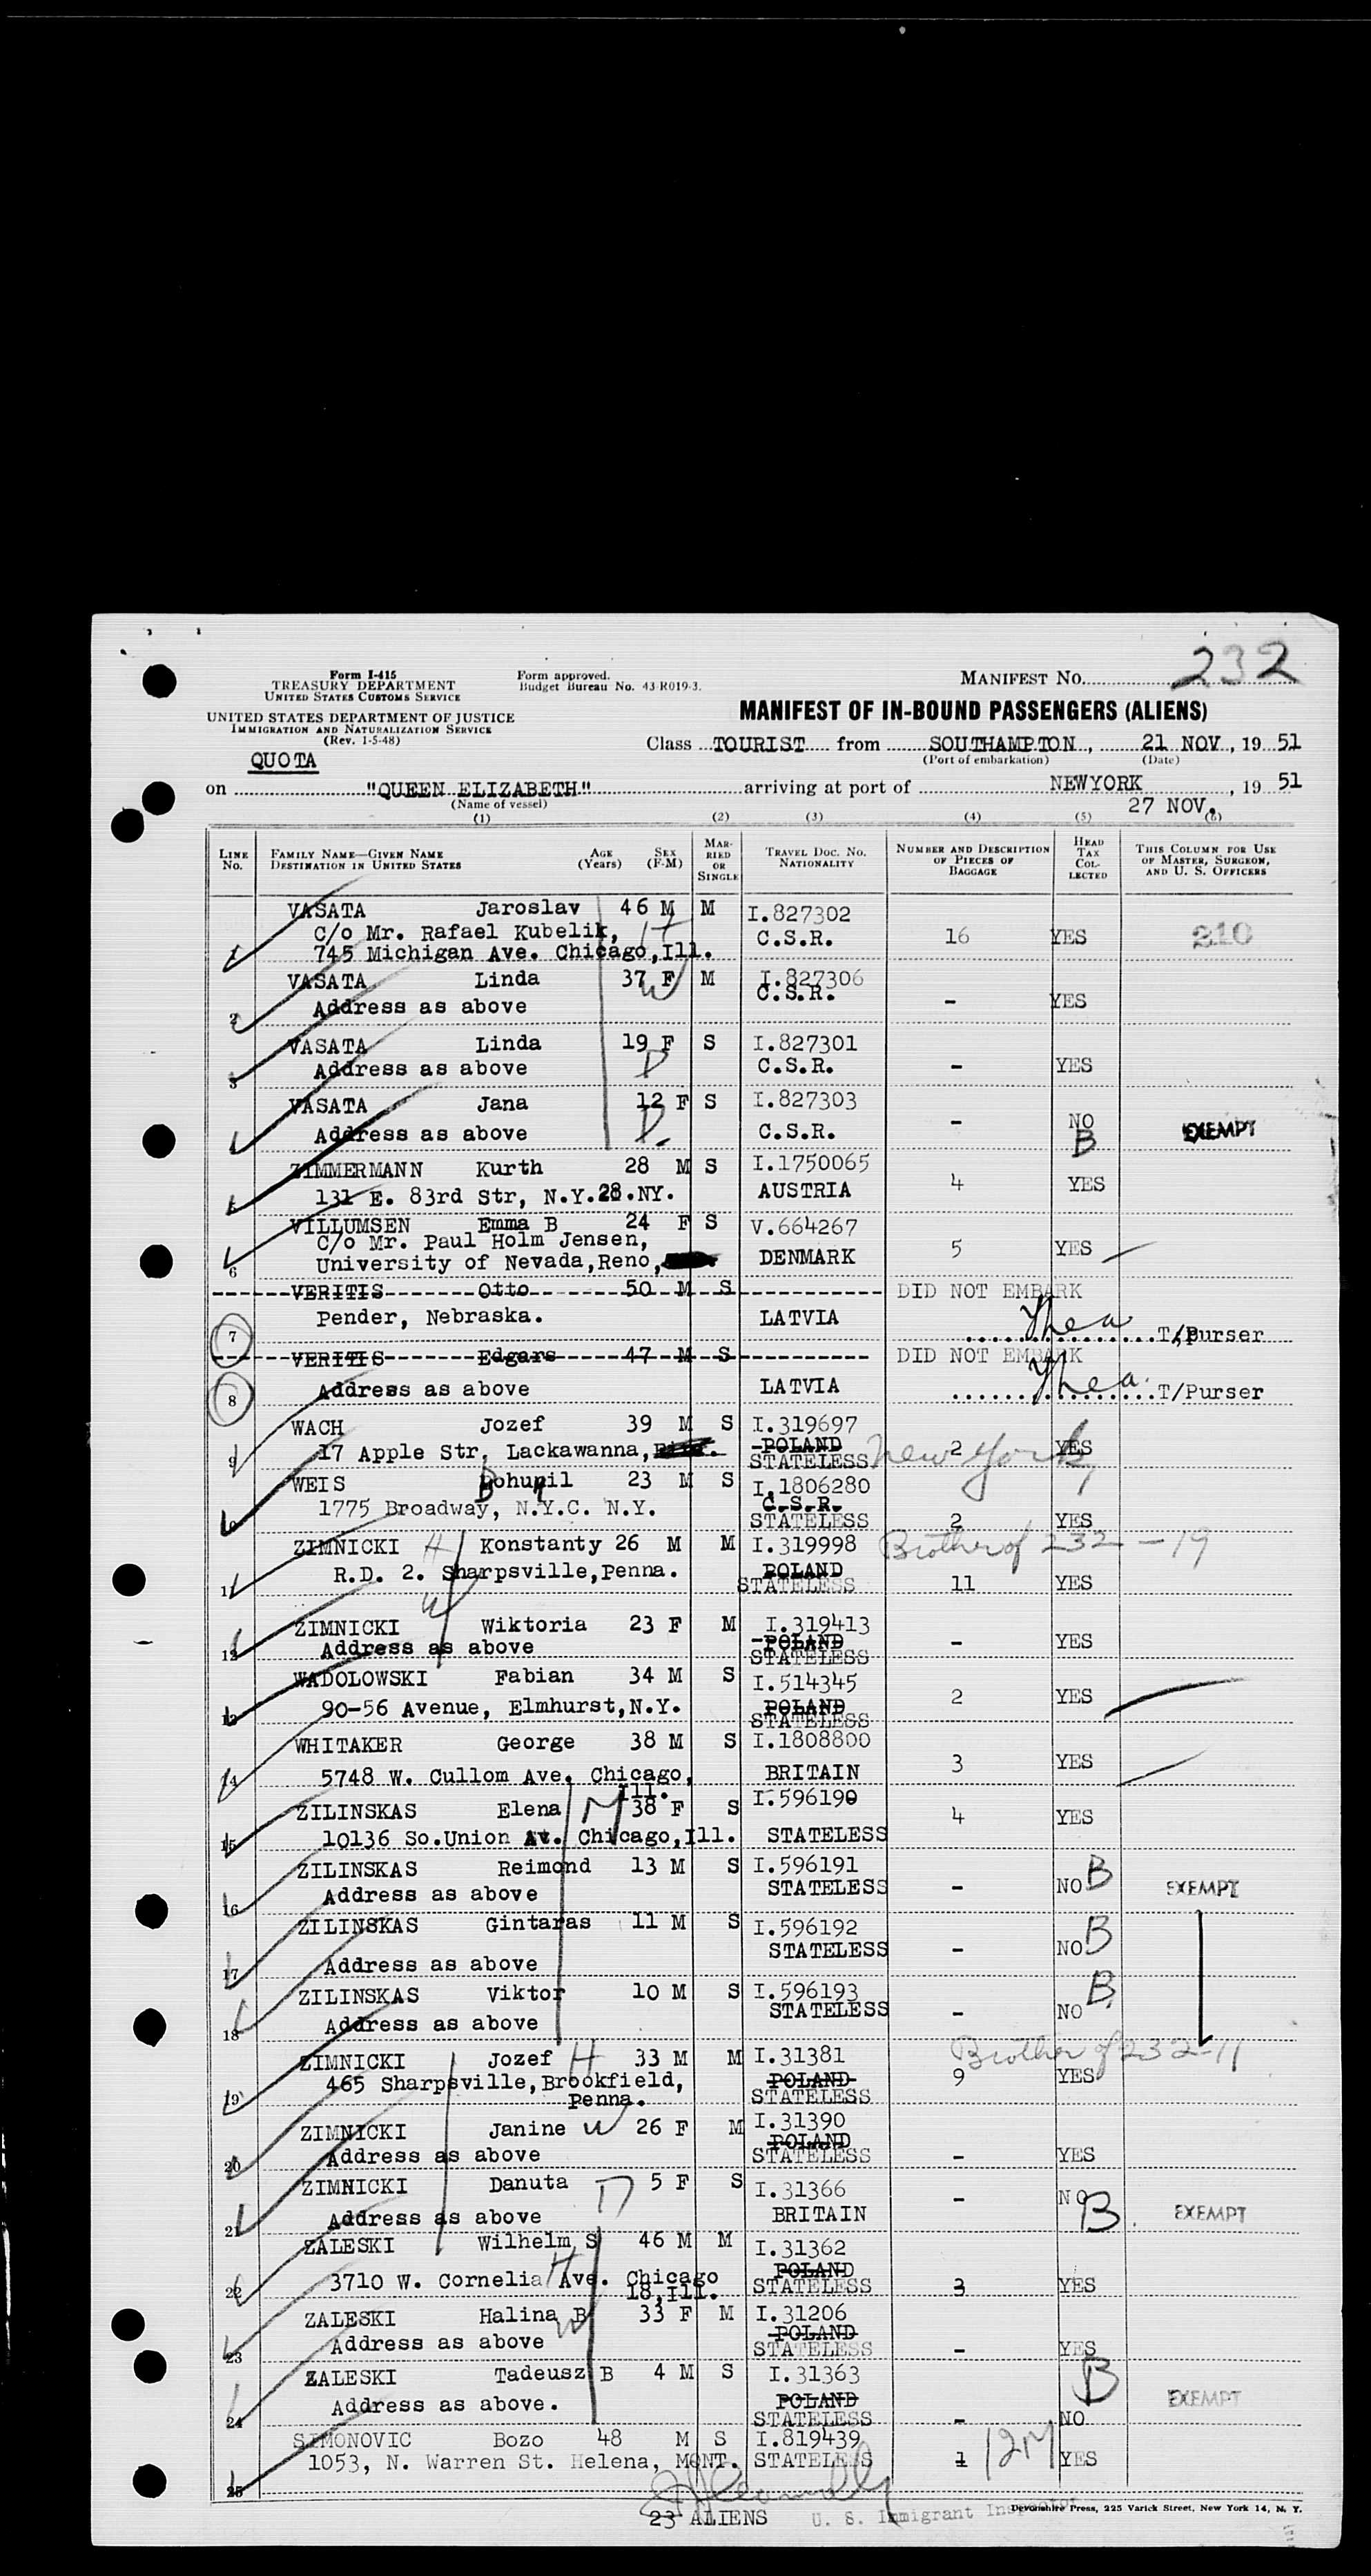 232
Form I-415
TREASURY DEPARTMENT
UNITED STATES CUSTOMS SERVICE
Form approved.
Budget Bureau No. 43-R019-3.
MANIFEST NO.
UNITED STATES DEPARTMENT OF JUSTICE
IMMIGRATION AND NATURALIZATION SERVICE
(Rev. 1-5-48)
MANIFEST OF IN-BOUND PASSENGERS (ALIENS)
QUOTA
Class TOURIST from SOUTHAMPTON, 21 NOV, 19 51
(Port of embarkation) (Date)
on "QUEEN ELIZABETH" arriving at port of NEWYORK, 19 51
(Name of vessel) 27 NOV.
(1) (2) (3) (4) (5) (6)
LINE NO. FAMILY NAME—GIVEN NAME DESTINATION IN UNITED STATES AGE (Years) SEX (F-M) MARRIED OR SINGLE TRAVEL DOC. NO. NATIONALITY NUMBER AND DESCRIPTION OF PIECES OF BAGGAGE HEAD TAX COLLECTED THIS COLUMN FOR USE OF MASTER, SURGEON, AND U. S. OFFICERS
VASATA Jaroslav 46 M M I.827302
C/o Mr. Rafael Kubelik, H C.S.R. 16 YES 210
1 745 Michigan Ave. Chicago,Ill.
VASATA Linda 37 F W M I.827306
2 Address as above C.S.R. - YES
VASATA Linda 19 F S I.827301
3 Address as above D C.S.R. - YES
VASATA Jana 12 F S I.827303
Address as above D. C.S.R. - NO B EXEMPT
ZIMMERMANN Kurth 28 M S I.1750065
5 131 E. 83rd Str, N.Y.28.NY. AUSTRIA 4 YES
VILLUMSEN Emma B 24 F S V.664267
C/o Mr. Paul Holm Jensen,
6 University of Nevada,Reno, DENMARK 5 YES
VERITIS Otto 50 M S DID NOT EMBARK
7 Pender, Nebraska. LATVIA T/Purser
VERITIS Edgars 47 M S DID NOT EMBARK
8 Address as above LATVIA T/Purser
WACH Jozef 39 M S I.319697
9 17 Apple Str, Lackawanna, POLAND STATELESS New York 2 YES
WEIS Bohumil 23 M S I.1806280
1775 Broadway, N.Y.C. N.Y. C.S.R. STATELESS 2 YES
ZIMNICKI H Konstanty 26 M M I.319998 Brother of 232-19
11 R.D. 2. Sharpsville,Penna. POLAND STATELESS 11 YES
W
ZIMNICKI Wiktoria 23 F M I.319413
12 Address as above POLAND STATELESS - YES
WADOLOWSKI Fabian 34 M S I.514345
13 90-56 Avenue, Elmhurst,N.Y. POLAND STATELESS 2 YES
WHITAKER George 38 M S I.1808800
14 5748 W. Cullom Ave. Chicago, Ill. BRITAIN 3 YES
ZILINSKAS Elena M 38 F S I.596190
15 10136 So.Union Av. Chicago,Ill. STATELESS 4 YES
ZILINSKAS Reimond 13 M S I.596191
16 Address as above STATELESS - NO B EXEMPT
ZILINSKAS Gintaras 11 M S I.596192
17 Address as above STATELESS - NO B
ZILINSKAS Viktor 10 M S I.596193
18 Address as above STATELESS - NO B
ZIMNICKI Jozef H 33 M M I.31381 Brother of 232-11
19 465 Sharpsville,Brookfield, Penna. POLAND STATELESS 9 YES
ZIMNICKI Janine W 26 F M I.31390
20 Address as above POLAND STATELESS - YES
ZIMNICKI Danuta D 5 F S I.31366
21 Address as above BRITAIN - NO B EXEMPT
ZALESKI Wilhelm S 46 M M I.31362
22 3710 W. Cornelia Ave. Chicago 18,Ill. H POLAND STATELESS 3 YES
ZALESKI Halina B 33 F M I.31206
23 Address as above W POLAND STATELESS - YES
ZALESKI Tadeusz B 4 M S I.31363
24 Address as above. POLAND STATELESS - NO B EXEMPT
SIMONOVIC Bozo 48 M S I.819439
25 1053, N. Warren St. Helena, MONT. STATELESS 1 12M YES
23 ALIENS U. S. Immigrant Inspector
Devonshire Press, 225 Varick Street, New York 14, N. Y.